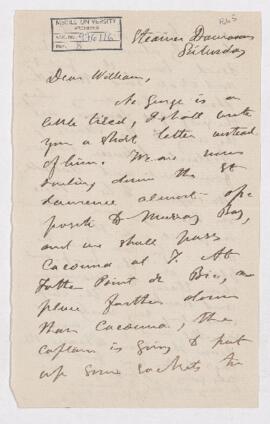 McGILL UNIVERSITY
ARCHIVES
ACC. NO.
REF. 8
Steamer
Saturday
Dear William,
As George is a
little tired, I shall write
you a short letter instead
of him. We are now
sailing down the St
Lawrence almost opp
posite to Murray Bay,
and we shall pass
Cacouna at 7. At
Father Point or Bic, a
place farther down
than Cacouna, the
captain is going to put
up some rockets to